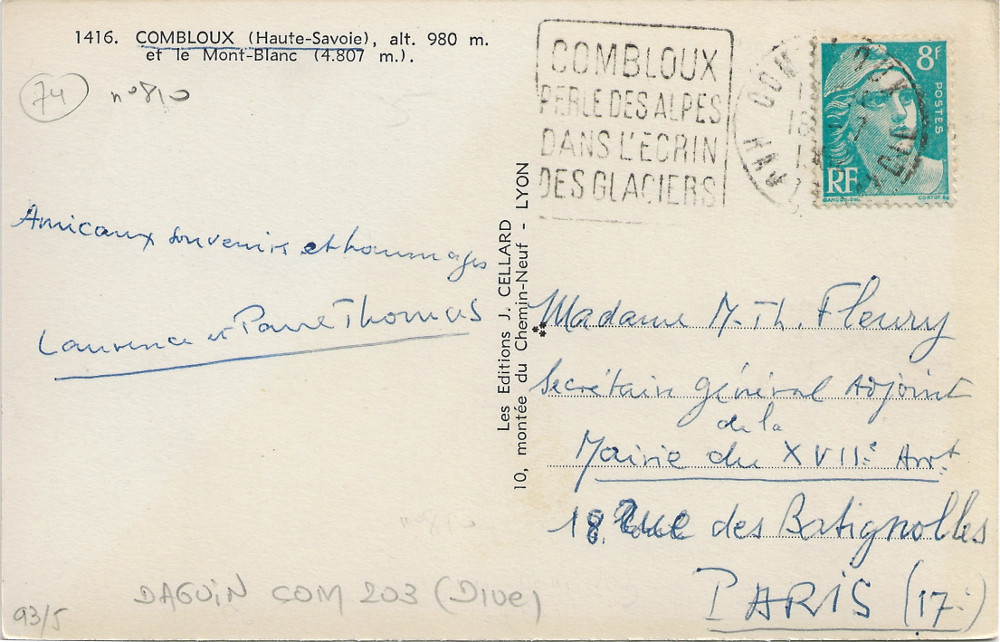 1416. COMBLOUX (Haute-Savoie), alt. 980 m.
et le Mont-Blanc (4.807 m.).
74
n°810
COMBLOUX
PERLE DES ALPES
DANS L'ECRIN
DES GLACIERS
8F
POSTES
RF
GANDON-DEL
CORTOT SC
Amicaux souvenirs et hommages
Laurence et Pierre Thomas
Les Editions J. CELLARD
10, montée du Chemin-Neuf - LYON
Madame M-Th. Fleury
Secrétaire Général Adjoint
de la
Mairie du XVIIe Arrt
18 Rue des Batignolles
PARIS (17e)
DAGUIN COM 203 (Dive)
93/5